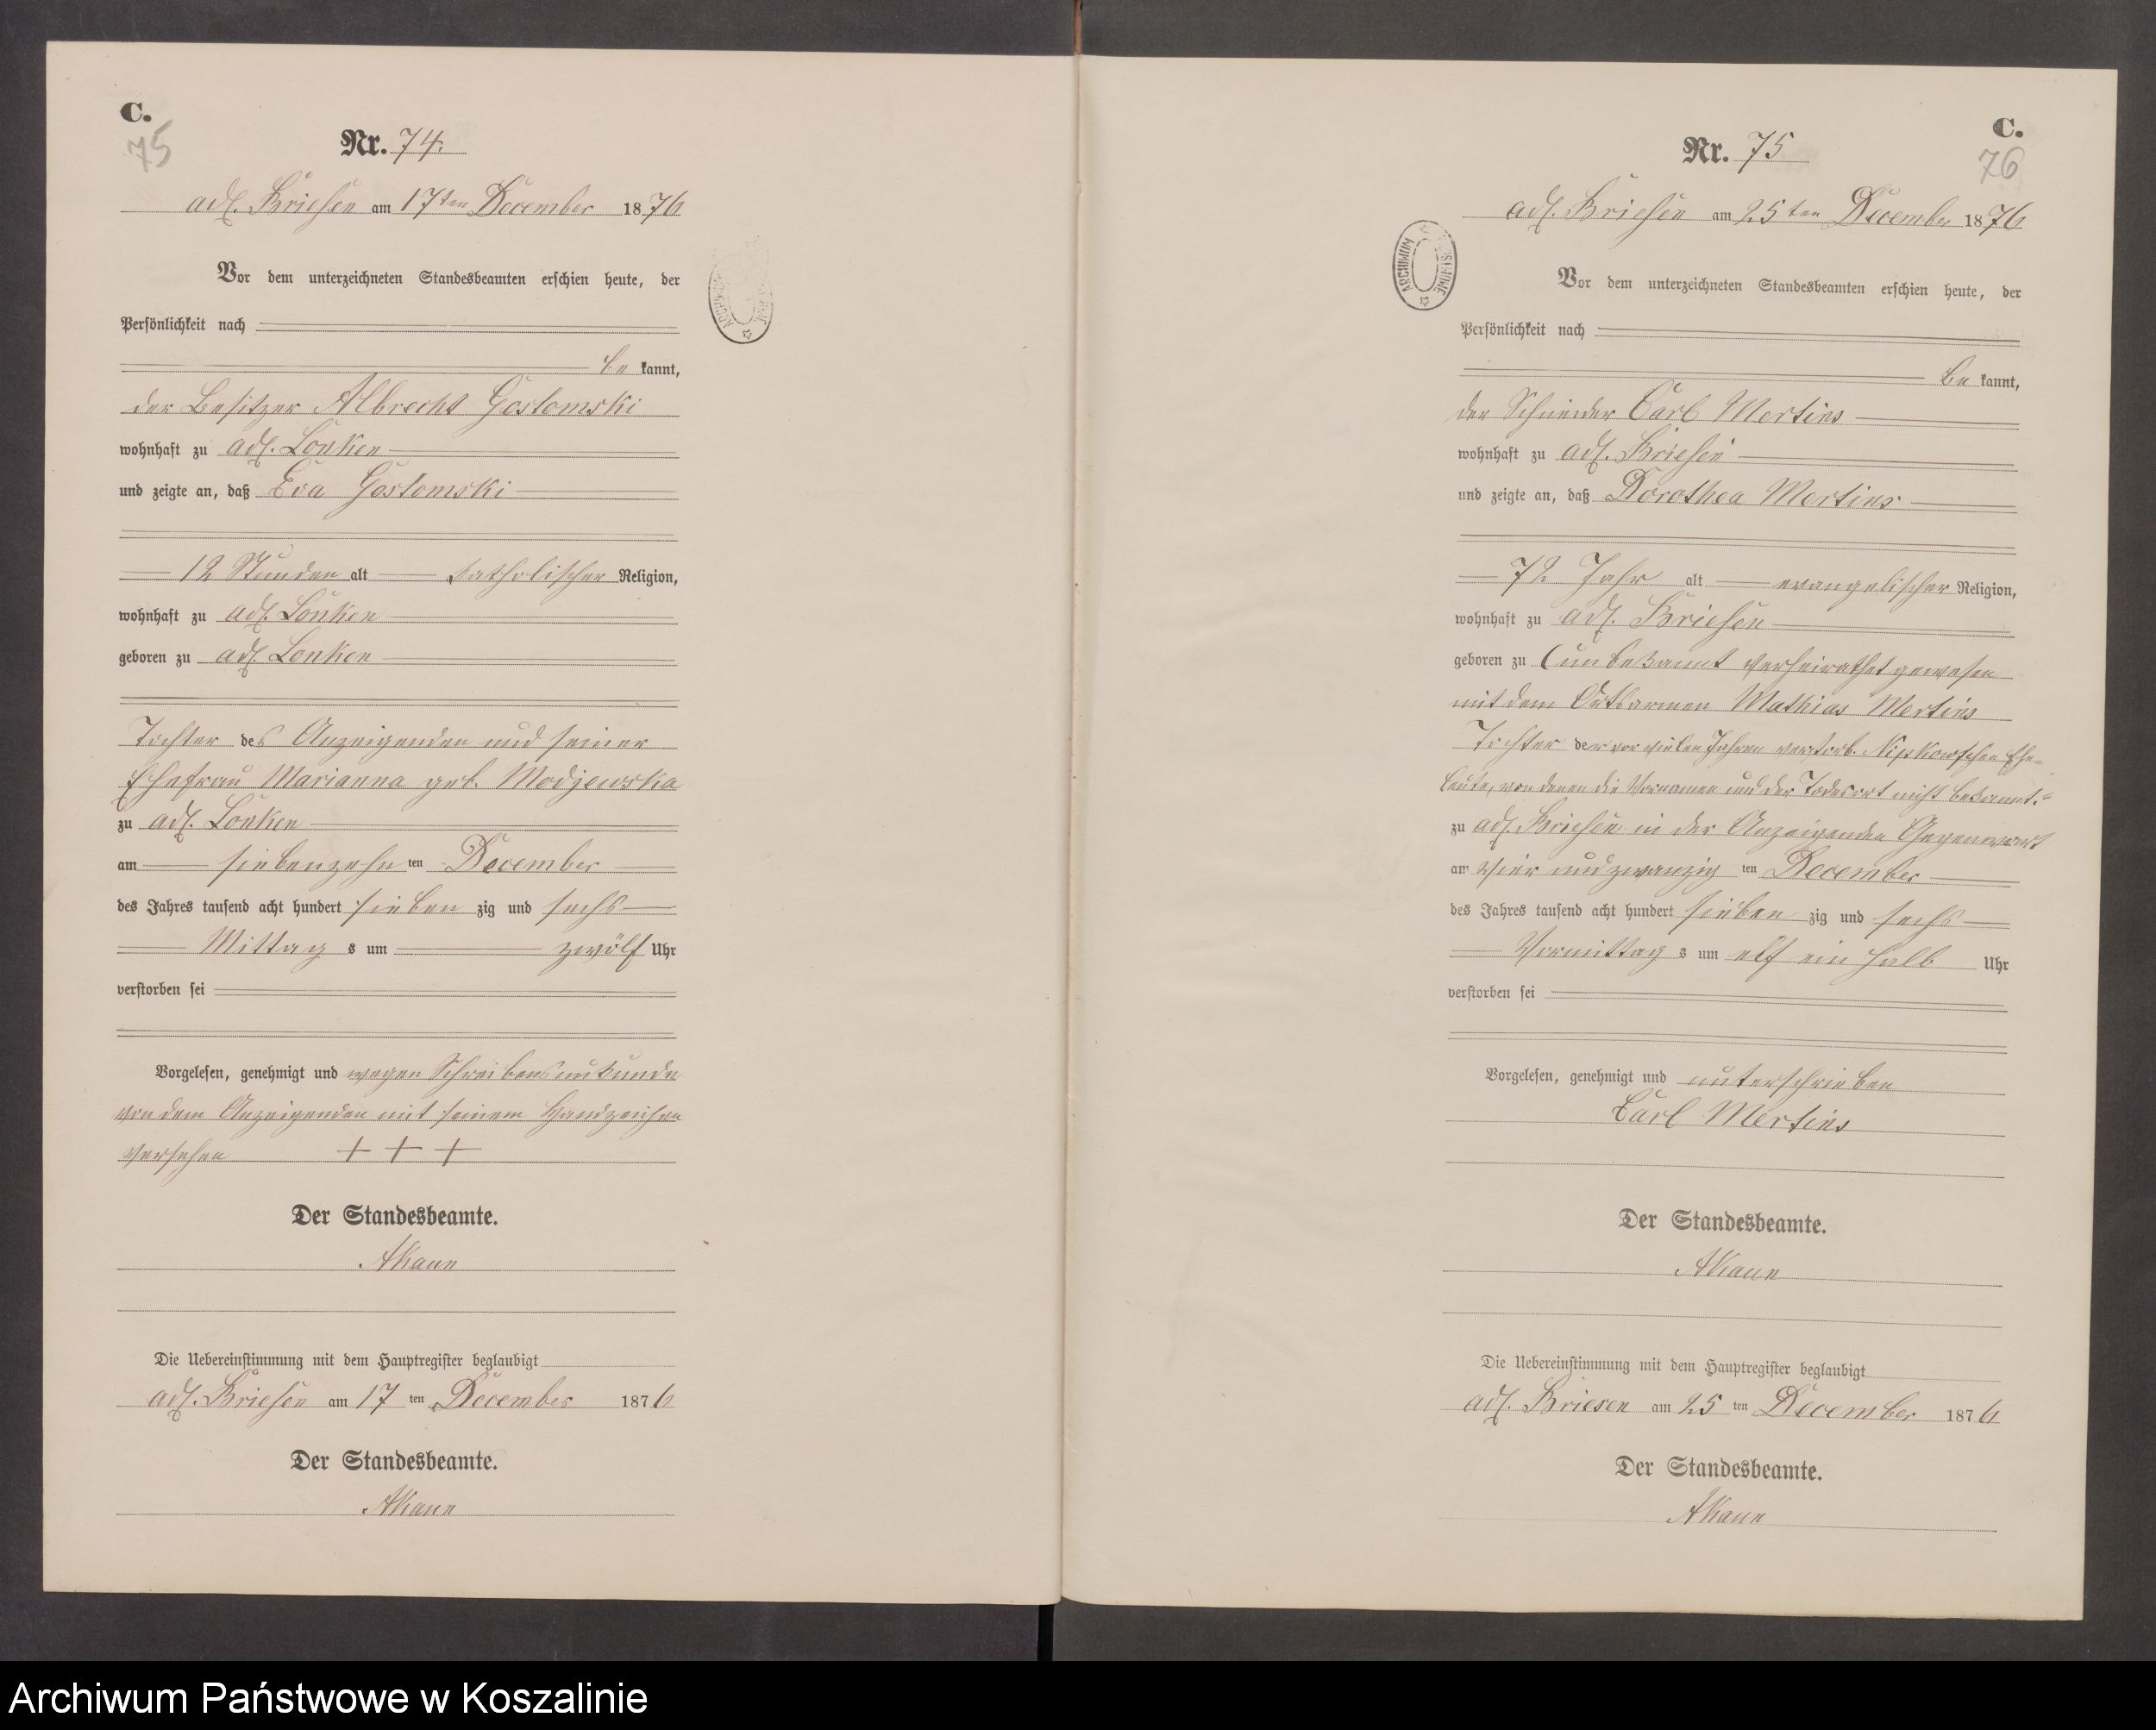 C.
75
Nr. 74.
adl. Briesen am 17ten December 1876
Vor dem unterzeichneten Standesbeamten erschien heute, der
Persönlichkeit nach
be kannt,
der Besitzer Albrecht Gostomski
wohnhaft zu adl. Lonken
und zeigte an, daß Eva Gostomski
12 Stunden alt katholischer Religion,
wohnhaft zu adl. Lonken
geboren zu adl. Lonken
Tochter des Anzeigenden und seiner
Ehefrau Marianna geb. Modjewska
zu adl. Lonken
am siebenzehn ten December
des Jahres tausend acht hundert sieben zig und sechs
Mittag s um zwölf Uhr
verstorben sei
Vorgelesen, genehmigt und wegen Schreibensunkunde
von dem Anzeigenden mit seinem Handzeichen
versehen + + +
Der Standesbeamte.
Die Uebereinstimmung mit dem Hauptregister beglaubigt
adl. Briesen am 17 ten December 1876
Der Standesbeamte.
C.
76
Nr. 75
adl. Briesen am 25ten December 1876
ARCHIWUM
Vor dem unterzeichneten Standesbeamten erschien heute, der
Persönlichkeit nach
be kannt,
der Schneider Carl Mertins
wohnhaft zu adl. Briesen
und zeigte an, daß Dorothea Mertins
72 Jahr alt evangelischer Religion,
wohnhaft zu adl. Briesen
geboren zu (unbekannt verheirathet gewesen
mit dem Ortsarmen Mathias Mertins
Tochter der vor vielen Jahren verstorb. Nipkowschen Ehe-
leute, von denen die Vornamen und der Todesort nicht bekannt.
zu adl. Briesen in der Anzeigenden Gegenwart
am vier und zwanzig ten December
des Jahres tausend acht hundert sieben zig und sechs
Vormittag s um elf ein halb Uhr
verstorben sei
Vorgelesen, genehmigt und unterschrieben
Carl Mertins
Der Standesbeamte.
Die Uebereinstimmung mit dem Hauptregister beglaubigt
adl. Briesen am 25 ten December 1876
Der Standesbeamte.
Archiwum Państwowe w Koszalinie